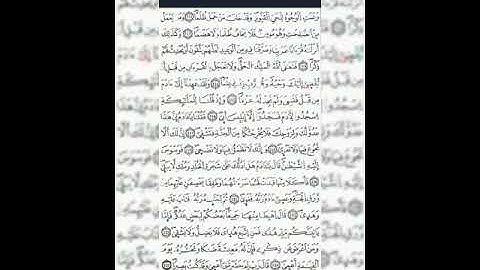 وَعَنَتِ ٱلْوُجُوهُ لِلْحَىِّ ٱلْقَيُّومِ وَقَدْ خَابَ مَنْ حَمَلَ ظُلْمًا ١١١ وَمَن يَعْمَلْ
مِنَ ٱلصَّٰلِحَٰتِ وَهُوَ مُؤْمِنٌ فَلَا يَخَافُ ظُلْمًا وَلَا هَضْمًا ١١٢ وَكَذَٰلِكَ
أَنزَلْنَٰهُ قُرْءَانًا عَرَبِيًّا وَصَرَّفْنَا فِيهِ مِنَ ٱلْوَعِيدِ لَعَلَّهُمْ يَتَّقُونَ أَوْ يُحْدِثُ لَهُمْ
ذِكْرًا ١١٣ فَتَعَٰلَى ٱللَّهُ ٱلْمَلِكُ ٱلْحَقُّ وَلَا تَعْجَلْ بِٱلْقُرْءَانِ مِن قَبْلِ أَن
يُقْضَىٰٓ إِلَيْكَ وَحْيُهُۥ وَقُل رَّبِّ زِدْنِى عِلْمًا ١١٤ وَلَقَدْ عَهِدْنَآ إِلَىٰٓ ءَادَمَ
مِن قَبْلُ فَنَسِىَ وَلَمْ نَجِدْ لَهُۥ عَزْمًا ١١٥ وَإِذْ قُلْنَا لِلْمَلَٰٓئِكَةِ
ٱسْجُدُوا۟ لِءَادَمَ فَسَجَدُوٓا۟ إِلَّآ إِبْلِيسَ أَبَىٰ ١١٦ فَقُلْنَا يَٰٓـَٔادَمُ إِنَّ هَٰذَا
عَدُوٌّ لَّكَ وَلِزَوْجِكَ فَلَا يُخْرِجَنَّكُمَا مِنَ ٱلْجَنَّةِ فَتَشْقَىٰٓ ١١٧ إِنَّ لَكَ أَلَّا
تَجُوعَ فِيهَا وَلَا تَعْرَىٰ ١١٨ وَأَنَّكَ لَا تَظْمَؤُا۟ فِيهَا وَلَا تَضْحَىٰ ١١٩ فَوَسْوَسَ
إِلَيْهِ ٱلشَّيْطَٰنُ قَالَ يَٰٓـَٔادَمُ هَلْ أَدُلُّكَ عَلَىٰ شَجَرَةِ ٱلْخُلْدِ وَمُلْكٍ لَّا يَبْلَىٰ
١٢٠ فَأَكَلَا مِنْهَا فَبَدَتْ لَهُمَا سَوْءَٰتُهُمَا وَطَفِقَا يَخْصِفَانِ عَلَيْهِمَا مِن
وَرَقِ ٱلْجَنَّةِ وَعَصَىٰٓ ءَادَمُ رَبَّهُۥ فَغَوَىٰ ١٢١ ثُمَّ ٱجْتَبَٰهُ رَبُّهُۥ فَتَابَ عَلَيْهِ
وَهَدَىٰ ١٢٢ قَالَ ٱهْبِطَا مِنْهَا جَمِيعًۢا بَعْضُكُمْ لِبَعْضٍ عَدُوٌّ فَإِمَّا
يَأْتِيَنَّكُم مِّنِّى هُدًى فَمَنِ ٱتَّبَعَ هُدَاىَ فَلَا يَضِلُّ وَلَا يَشْقَىٰ ١٢٣
وَمَنْ أَعْرَضَ عَن ذِكْرِى فَإِنَّ لَهُۥ مَعِيشَةً ضَنكًا وَنَحْشُرُهُۥ يَوْمَ
ٱلْقِيَٰمَةِ أَعْمَىٰ ١٢٤ قَالَ رَبِّ لِمَ حَشَرْتَنِىٓ أَعْمَىٰ وَقَدْ كُنتُ بَصِيرًا ١٢٥